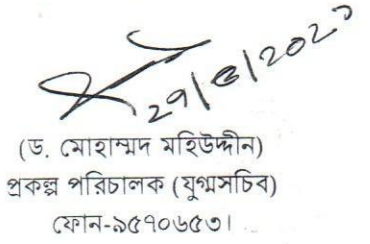 (ড. মোহাম্মদ মহিউদ্দীন)
প্রকল্প পরিচালক (যুগ্মসচিব)
ফোন-৯৫৭০৬৫৩।